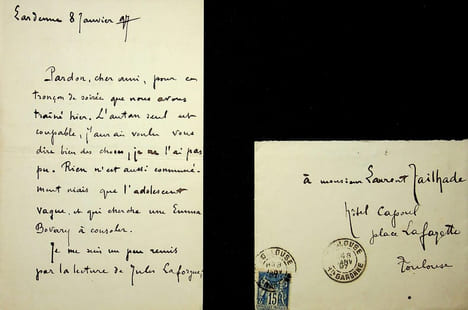 Lardenne 8 Janvier 97
Pardon, cher ami, pour ce
tronçon de soirée que nous avons
traîné hier. L'autan seul est
coupable, j'aurais voulu vous
dire bien des choses, je ne l'ai pas
pu. Rien n'est aussi communé-
ment niais que l'adolescent
vague, et qui cherche une Emma
Bovary à consoler.
Je me suis un peu remis
par la lecture de Jules Laforgue,
à monsieur Laurent Tailhade
hôtel Capoul
place Lafayette
Toulouse
TOULOUSE
JANV
97
Hte GARONNE
15